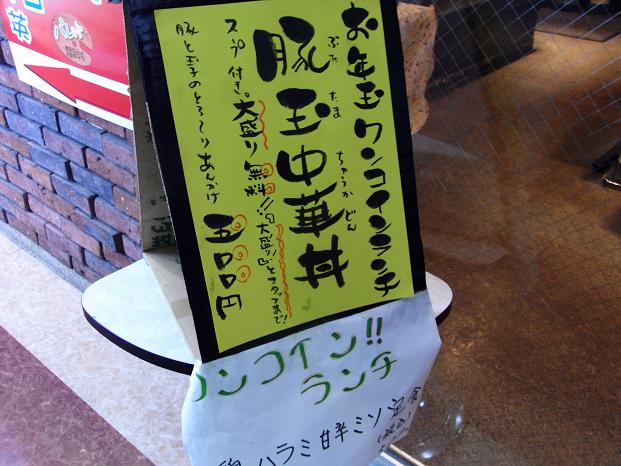 お年玉ワンコインランチ
ぶた たま ちゅうか どん
豚玉中華丼
スープ付き。大盛り無料!!
大盛りGOとスタッフまで!
豚と玉子のとろ〜りあんかけ
五〇〇円
ワンコイン!!
ランチ
ハラミ甘辛ミソ定食
(税込)